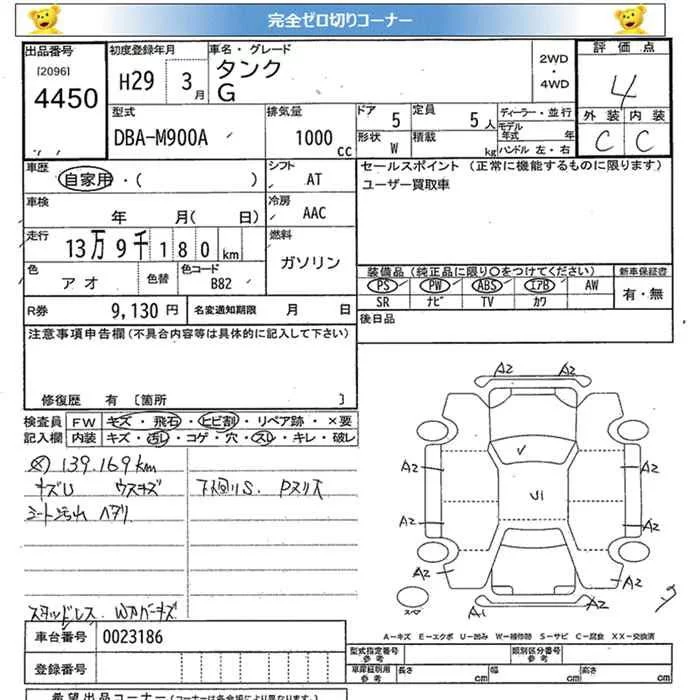 完全ゼロ切りコーナー
出品番号 初度登録年月 車名・グレード 2WD・4WD 評価点
[2096]
4450
H29 3月
タンク
G
4
外装 内装
C C
型式 DBA-M900A
排気量 1000 CC
ドア 5 定員 5人
形状 W 積載 kg
ディーラー・並行
モデル年式 年
ハンドル 左・右
車歴 自家用・( )
シフト AT
セールスポイント (正常に機能するものに限ります)
ユーザー買取車
車検 年 月( 日)
冷房 AAC
走行 13万9千180km
燃料 ガソリン
色 アオ 色替 色コード B82
装備品 (純正品に限り〇をつけてください) 新車保証書
PS PW ABS エアB AW 有・無
SR ナビ TV カワ
R券 9,130円 名変通知期限 月 日
後日品
注意事項申告欄 (不具合内容等は具体的に記入して下さい)
修復歴 有 [箇所 ]
検査員 FW キズ・飛石・ヒビ割・リペア跡・×要
記入欄 内装 キズ・汚レ・コゲ・穴・スレ・キレ・破レ
139.169km
キズU ウスキズ 下回りS. Pスリズ
シート汚 ヘタリ
スタッドレス. Wカバーキズ
A2 A2
A2 A2
U1
A2 A2
A2 A2
スペア A1 A2
A-キズ E-エクボ U-凹み W-補修跡 S-サビ C-腐食 XX-交換済
車台番号 0023186
型式指定番号 参考 類別区分番号 参考
登録番号
車庫証明用 参考 長さ cm 幅 cm 高さ cm
希望出品コーナー